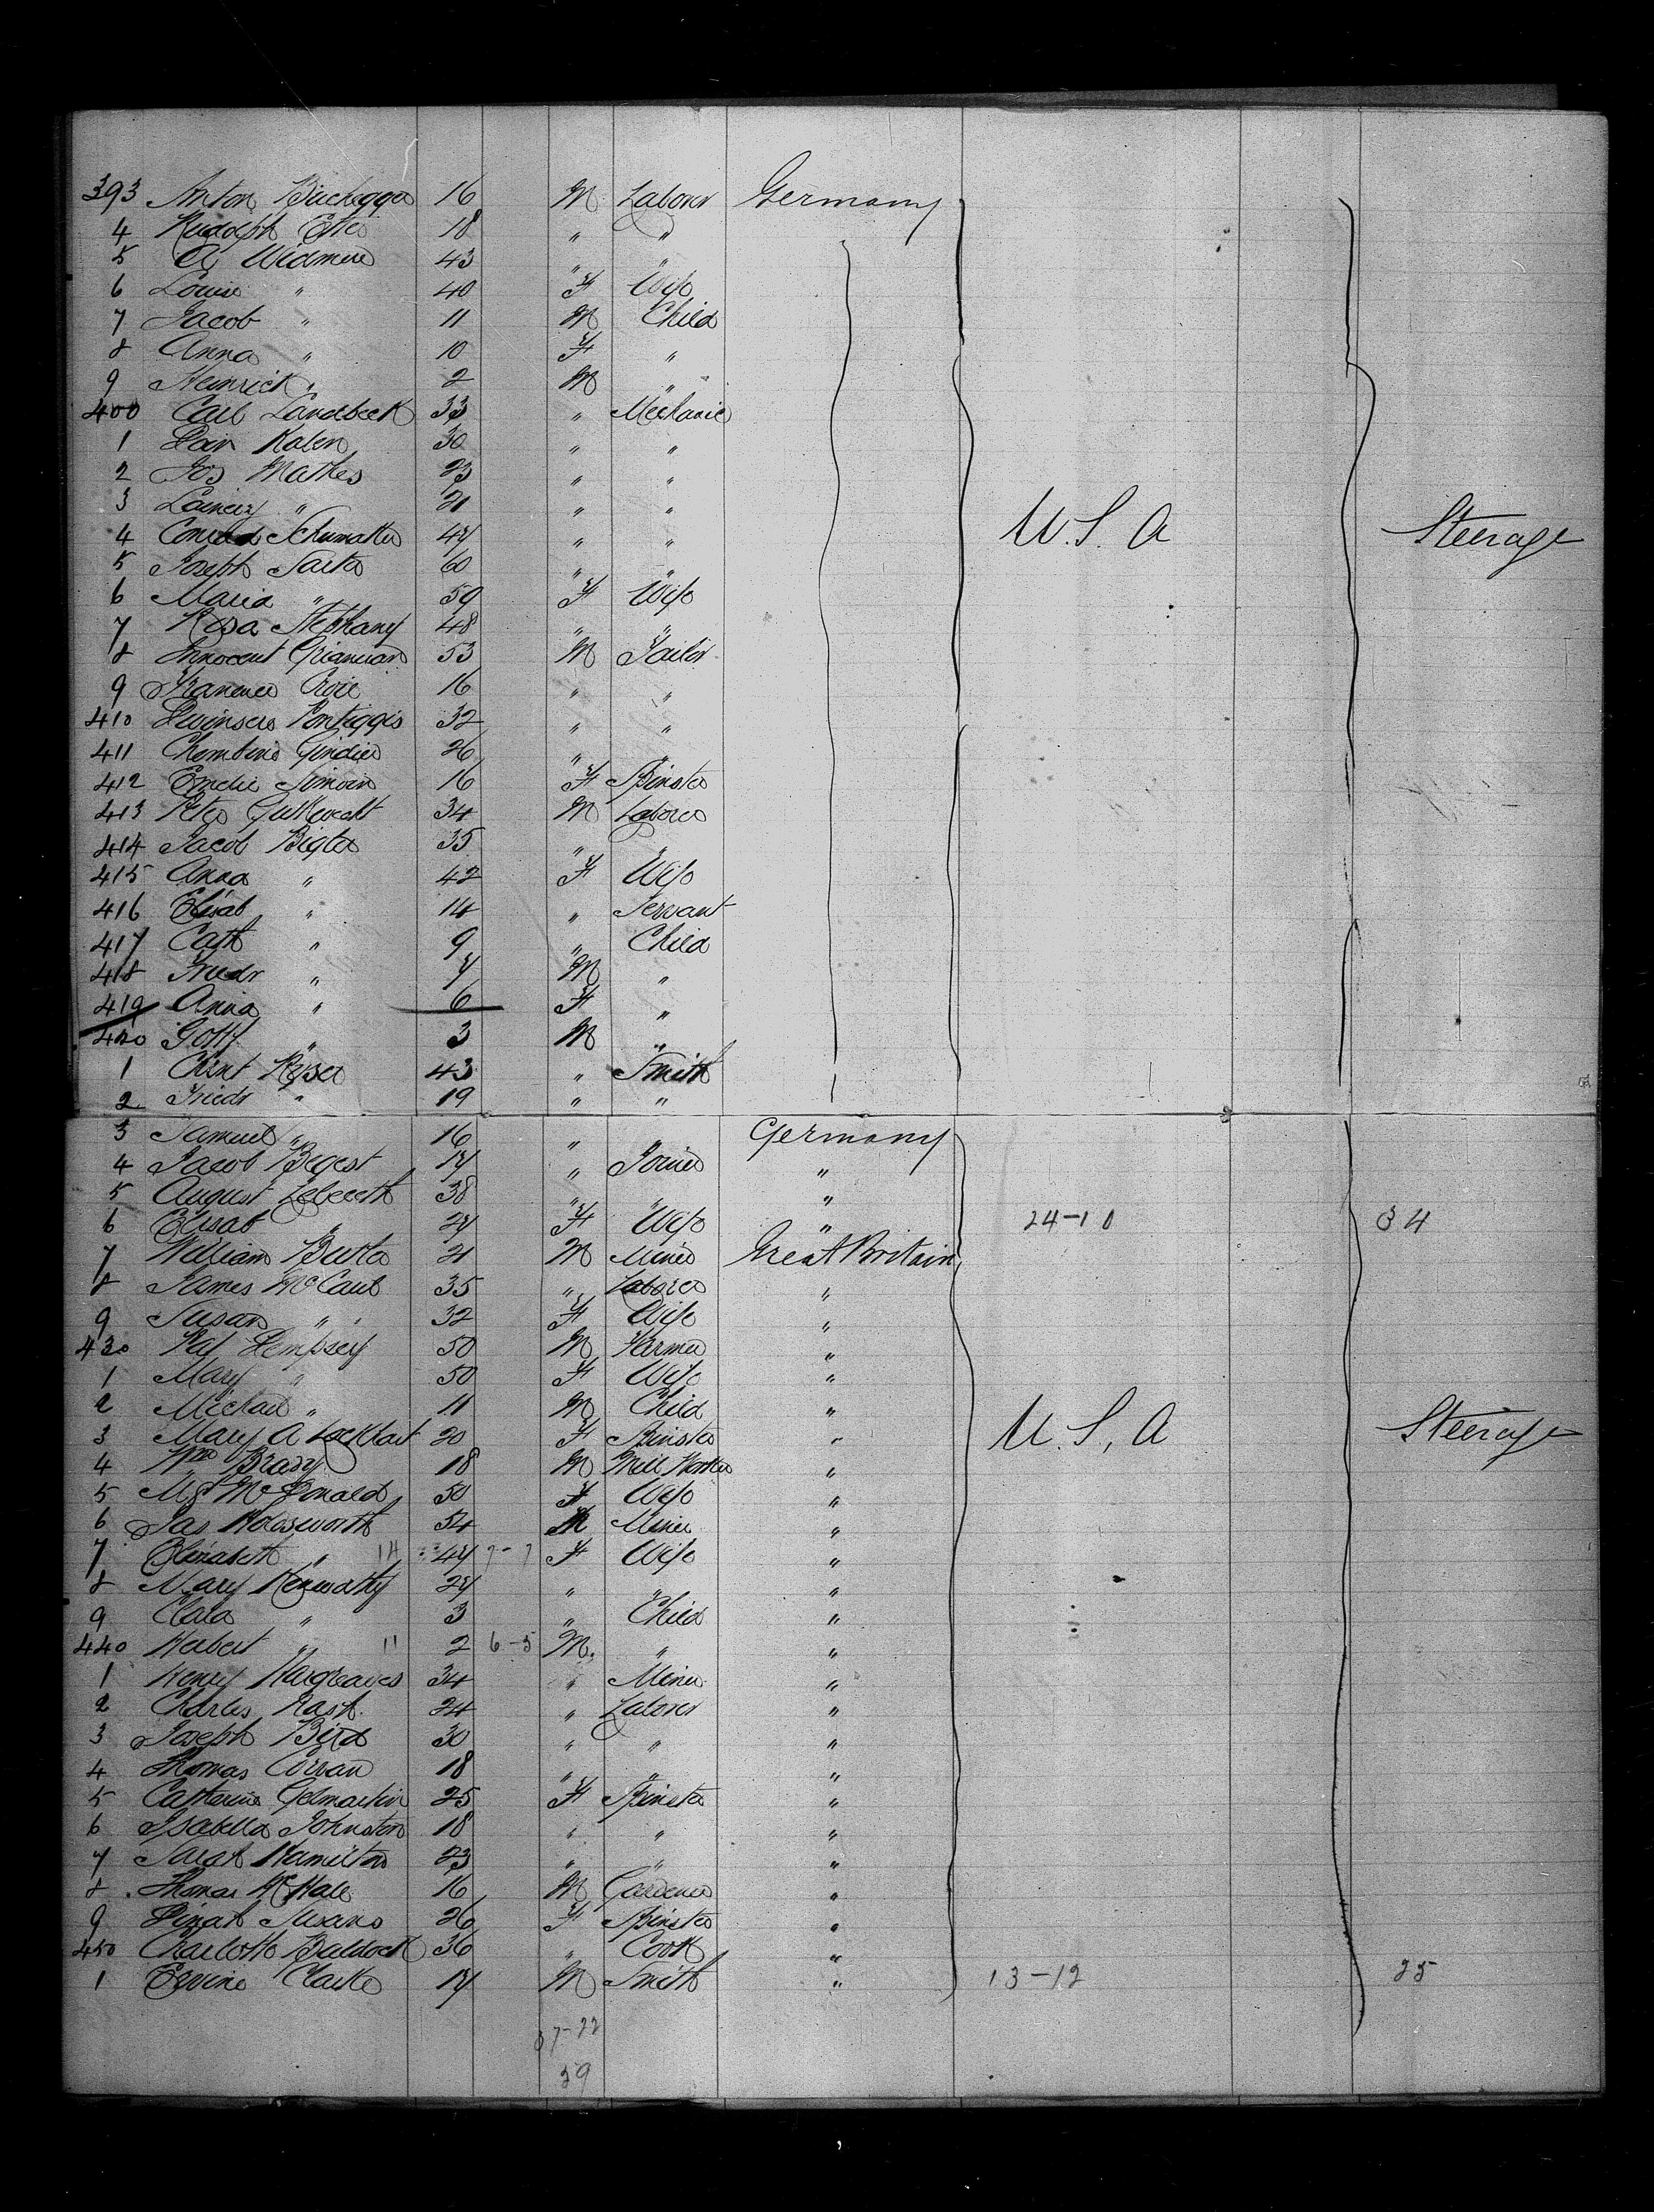 393 Anton Buchegger 16 M Laborer Germany
4 Rudolph 18 " "
5 Widmer 43 " "
6 Louise " 40 F Wife
7 Jacob " 11 M Child
8 Anna " 10 F "
9 Heinrich " 2 M "
400 Carl Landbeck 33 " Mechanic
1 30 " "
2 Jos Mathes 23 " "
3 " 21 " " U.S.A Steerage
4 Conrad Schumaker 47 " "
5 Joseph 60 " "
6 Maria " 59 F Wife
7 Rosa Stephany 48 " "
8 Innocent 53 M Tailor
9 16 " "
410 32 " "
411 26 " "
412 Emelie 16 F Spinster
413 Peter 34 M Laborer
414 Jacob Bigler 35 " "
415 Anna " 42 F Wife
416 Elisab " 14 " Servant
417 Cath " 9 " Child
418 Friedr " 7 M "
419 Anna " 6 F "
420 Gottf " 3 M "
1 Keyser 43 " Smith
2 Friedr " 19 " "
3 Samuel " 16 " Germany
4 Jacob 17 " Joiner "
5 August 38 " " "
6 Elisab " 27 F Wife " 24-10 34
7 William Butler 21 M Miner Great Britain
8 James McCaul 35 " Laborer "
9 Susan " 32 F Wife "
430 Pat Dempsey 50 M Farmer "
1 Mary " 50 F Wife "
2 Michael " 11 M Child "
3 Mary A Lockhart 20 F Spinster " U.S.A Steerage
4 Wm Brady 18 M Mill Worker "
5 Mgt McDonald 50 F Wife "
6 Jas Holdsworth 54 M Miner "
7 Elizabeth " 14 47 7-7 F Wife "
8 Mary Kenworthy 27 " " "
9 Clara " 3 " Child "
440 Herbert " 11 2 6-5 M. " "
1 Henry Hargreaves 34 " Miner "
2 Charles Rast 24 " Laborer "
3 Joseph Bird 30 " " "
4 Thomas Corran 18 " " "
5 Catherine Gelmartin 25 F Spinster "
6 Isabella Johnston 18 " " "
7 Sarah Hamilton 23 " " "
8 Thomas McHale 16 M Gardener "
9 Dinah 26 F Spinster "
450 Charlotte Baldock 36 " Cook "
1 Clarke 17 M Smith " 13-12 25
37-22
59